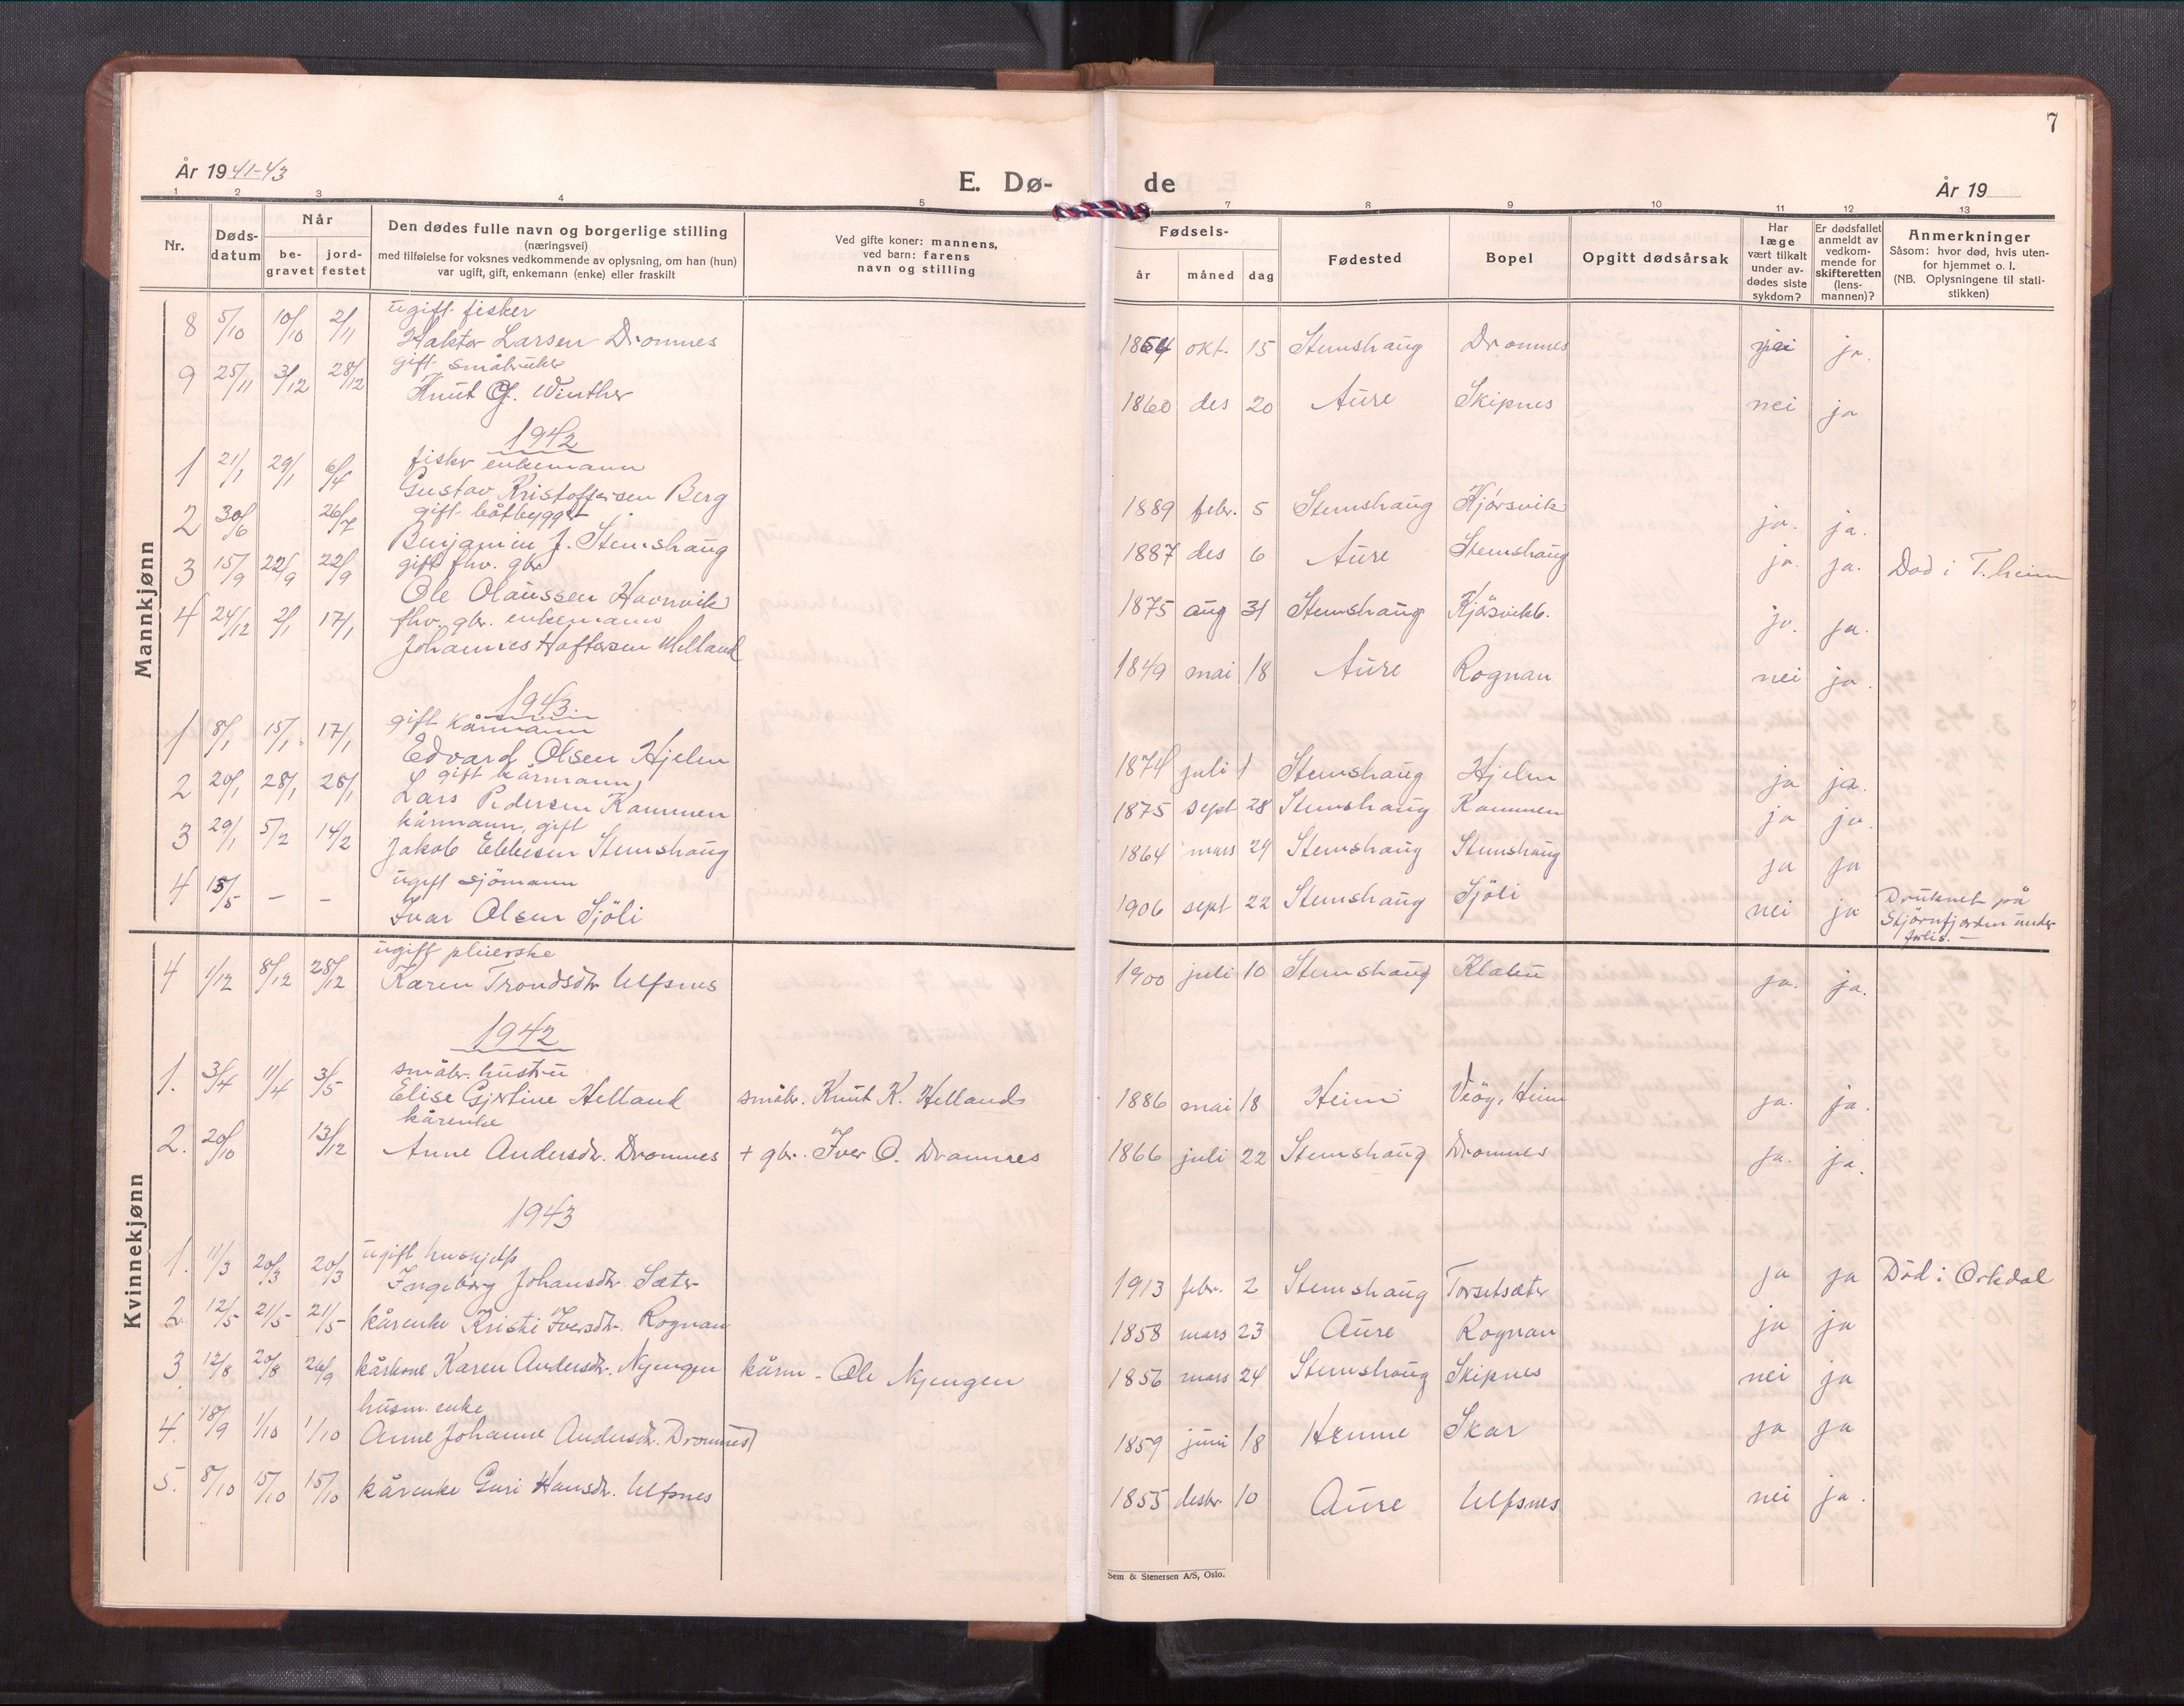 7
År 1941-43
E. Dø-
de
År 19
1 2 3 4 5 7 8 9 10 11 12 13
Nr.
Døds-
datum
Når
be-
gravet
jord-
festet
Den dødes fulle navn og borgerlige stilling
(næringsvei)
med tilføielse for voksnes vedkommende av oplysning, om han (hun)
var ugift, gift, enkemann (enke) eller fraskilt
Ved gifte koner: mannens,
ved barn: farens
navn og stilling
Fødsels-
år måned dag
Fødested
Bopel
Opgitt dødsårsak
Har
læge
vært tilkalt
under av-
dødes siste
sykdom?
Er dødsfallet
anmeldt av
vedkom-
mende for
skifteretten
(lens-
mannen)?
Anmerkninger
Såsom: hvor død, hvis uten-
for hjemmet o. l.
(NB. Oplysningene til stati-
stikken)
Mannkjønn
ugift fisker
8 5/10 10/10 2/11 Haktor Larsen Dromnes 1864 okt. 15 Stemshaug Dromnes ja.
gift småbruker
9 25/11 3/12 28/12 Knut G. Winther 1860 des 20 Aure Skipnes nei ja
1942
fisker enkemann
1 21/1 29/1 6/4 Gustav Kristoffersen Berg 1889 febr. 5 Stemshaug Kjørsvik ja. ja.
gift båtbygger
2 30/6 26/7 Benjamin J. Stemshaug 1887 des 6 Aure Stemshaug ja. ja.
gift fhv. gbr
3 15/9 22/9 22/9 Ole Olaussen Havnvik 1875 aug 31 Stemshaug Kjørsvikb. ja. ja. Død i T.heim
fhv. gbr. enkemann
4 24/12 2/1 17/1 Johannes Haftersen Melland 1849 mai 18 Aure Rognan nei ja.
1943.
gift kårmann
1 8/1 15/1. 17/1 Edvard Olsen Hjelm 1874 juli 1 Stemshaug Hjelm ja ja.
gift kårmann,
2 20/1 28/1 28/1 Lars Pedersen Kammen 1875 sept 28 Stemshaug Kammen ja ja.
kårmann, gift
3 29/1 5/2 14/2 Jakob Ebbesen Stemshaug 1864 mars 29 Stemshaug Stemshaug ja ja
ugift sjömann
4 15/5 - - Ivar Olsen Sjöli 1906 sept 22 Stemshaug Sjöli nei ja Druknet på
Stjørnfjorden under
forlis. -
Kvinnekjønn
ugift pleierske
4 1/12 8/12 28/12 Karen Trondsdtr. Ulfsnes 1900 juli 10 Stemshaug Klæbu ja. ja.
1942
småbr. hustru
1. 3/4 11/4 3/5 Elise Gjertine Helland småbr. Knut K. Hellands 1886 mai 18 Heim Viøy, Heim ja. ja.
kårenke
2. 20/10 13/12 Anne Andersdtr. Dromnes + gbr. Iver O. Dromnes 1866 juli 22 Stemshaug Dromnes ja. ja.
1943
ugift hushjelp
1. 11/3 20/3 20/3 Ingeborg Johansdtr. Sæter 1913 febr. 2 Stemshaug Torsetsæter ja ja Död i Orkdal
2. 12/5 21/5 21/5 kårenke Kristi Iversdtr. Rognan 1858 mars 23 Aure Rognan ja ja
3. 12/8 20/8 26/9 kårkone Karen Andersdtr. Nyengen kårm - Ole Nyengen 1856 mars 24 Stemshaug Skipnes nei ja
husm. enke
4. 18/9 1/10 1/10 Anne Johanne Andersdtr. Dromnes 1859 juni 18 Hemne Skar ja ja
5. 8/10 15/10 15/10 kårenke Guri Hansdtr. Ulfsnes 1855 desbr. 10 Aure Ulfsnes nei ja.
Sem & Stenersen A/S, Oslo.